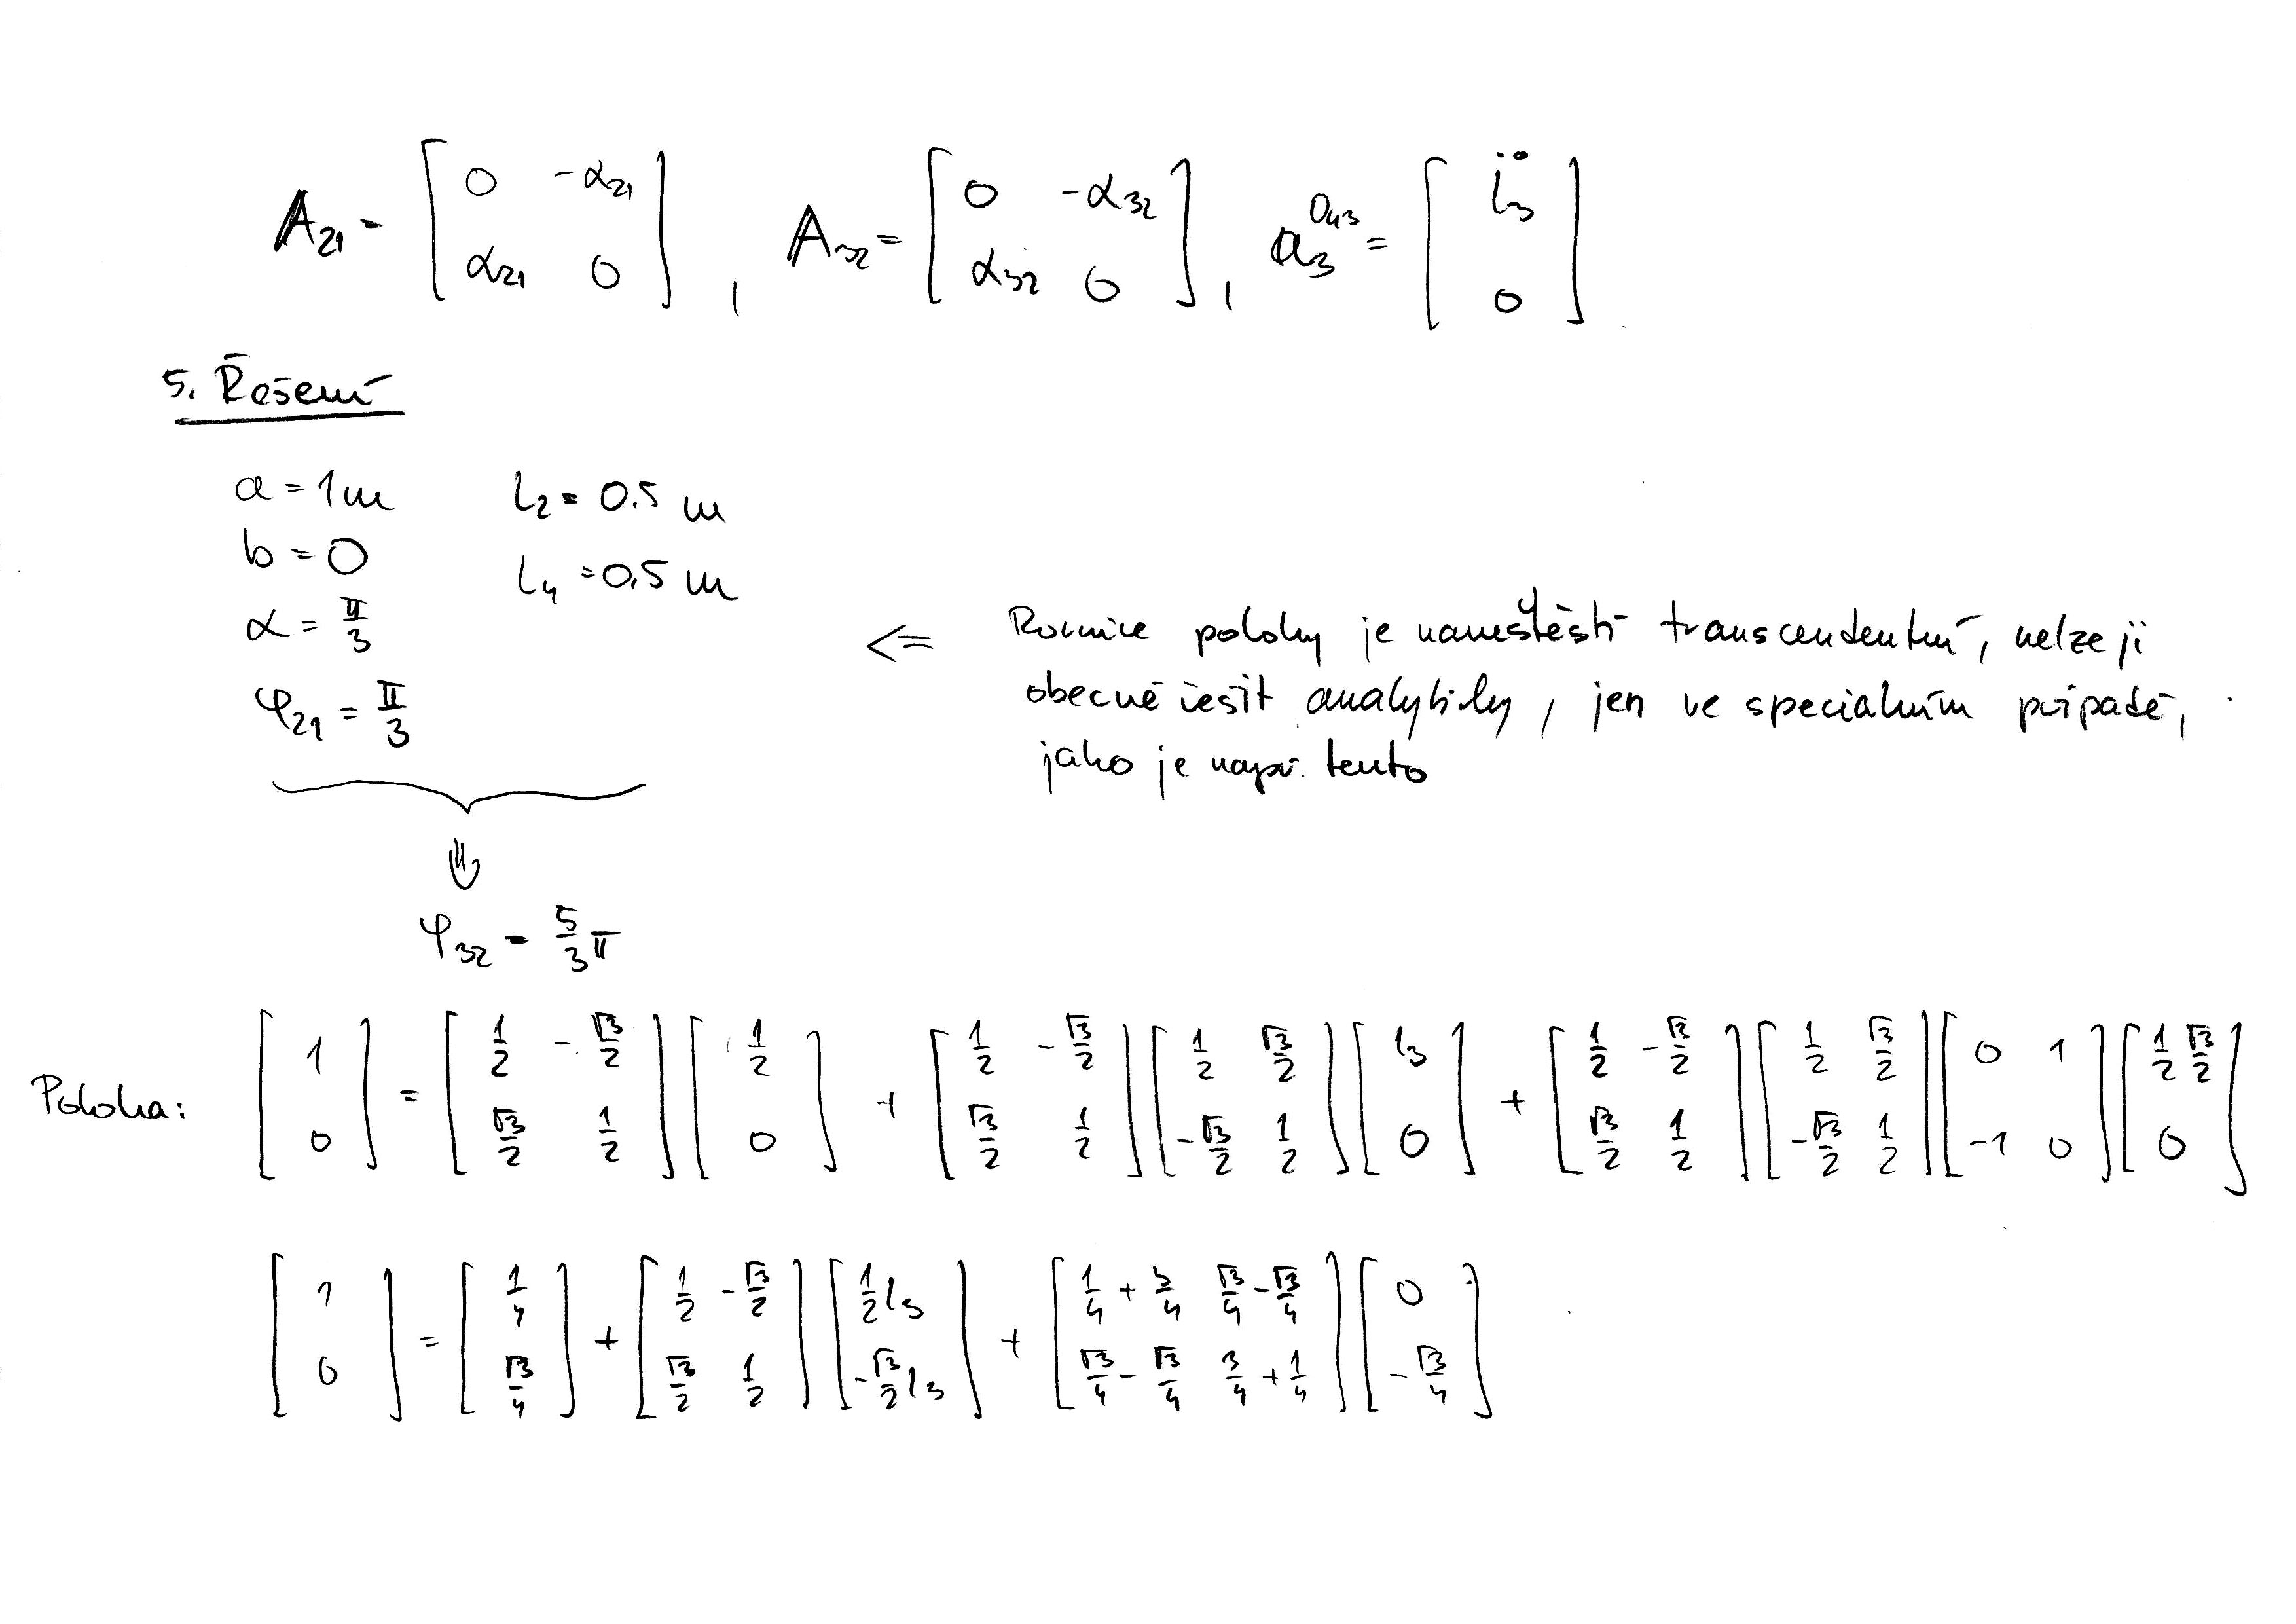 A₂₁ = [ 0 -α₂₁ ; α₂₁ 0 ] , A₃₂ = [ 0 -α₃₂ ; α₃₂ 0 ] , a₃^(O₄₃) = [ l̈₃ ; 0 ]
5. Řešení
a = 1 m l₂ = 0.5 m
b = 0 l₄ = 0,5 m
α = π/3
φ₂₁ = π/3
<= Rovnice polohy je naneštěstí transcendentní, nelze ji
obecně řešit analyticky, jen ve speciálním případě,
jako je např. tento
⇓
φ₃₂ = 5/3 π
Poloha: [ 1 ; 0 ] = [ 1/2 -√3/2 ; √3/2 1/2 ] [ 1/2 ; 0 ] + [ 1/2 -√3/2 ; √3/2 1/2 ] [ 1/2 √3/2 ; -√3/2 1/2 ] [ l₃ ; 0 ] + [ 1/2 -√3/2 ; √3/2 1/2 ] [ 1/2 √3/2 ; -√3/2 1/2 ] [ 0 1 ; -1 0 ] [ 1/2 √3/2 ; 0 ]
[ 1 ; 0 ] = [ 1/4 ; √3/4 ] + [ 1/2 -√3/2 ; √3/2 1/2 ] [ 1/2 l₃ ; -√3/2 l₃ ] + [ 1/4 + 3/4 √3/4 - √3/4 ; √3/4 - √3/4 3/4 + 1/4 ] [ 0 ; -√3/4 ]